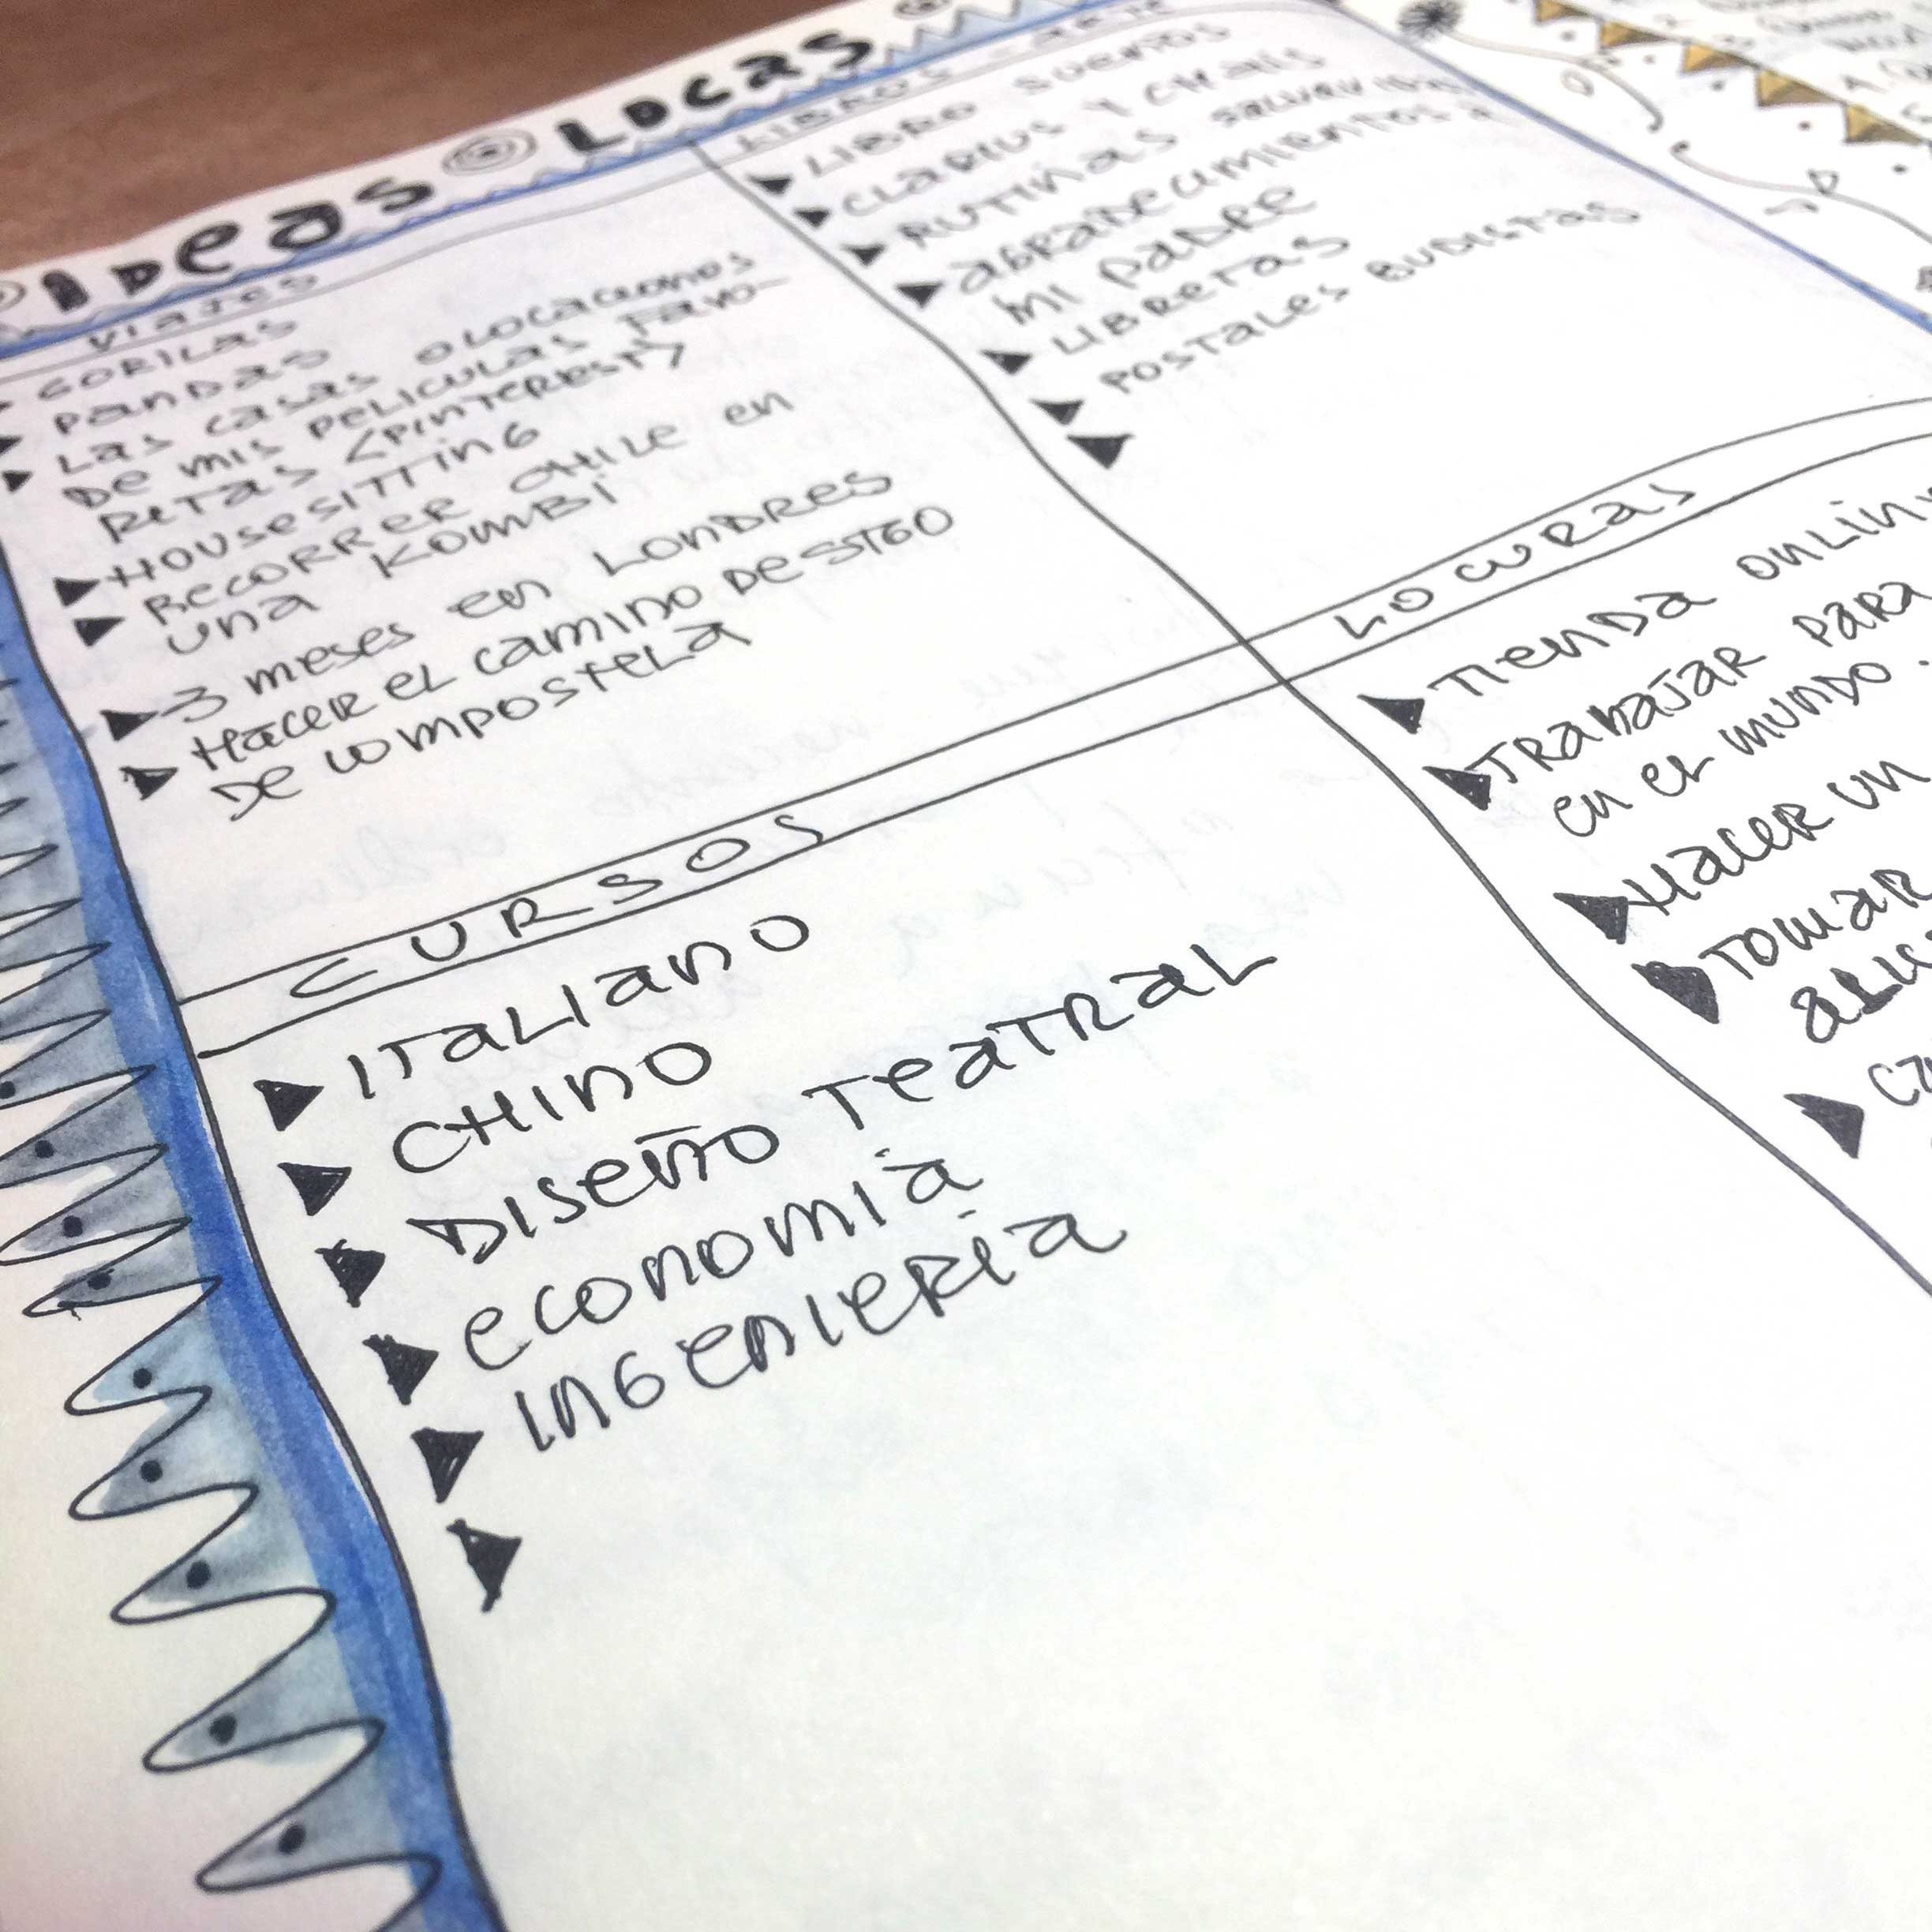 IDeas Locas
VIAJES
GORILAS
PanDas
Las casas o Locaciones
De mis PELICULAS Favo-
RITAS <PINTEREST>
HOUSESITTING
RECORRER CHILE en
una KOMBI
3 meses en LONDRES
HaceR eL camino De STGO
De compostela
LIBROS - ARTE
LIBRO SUEÑOS
CLARIUS Y CHAIS
RUTINAS
AGRADECIMIENTOS a
MI PADRE
LIBRETAS
POSTALES BUDISTAS
CURSOS
ITALIANO
CHINO
DISEÑO TEATRAL
economía
INGENIERÍA
LOCURAS
TIENDA
TRABAJAR PARA
en el mundo
Hacer un
TOMAR